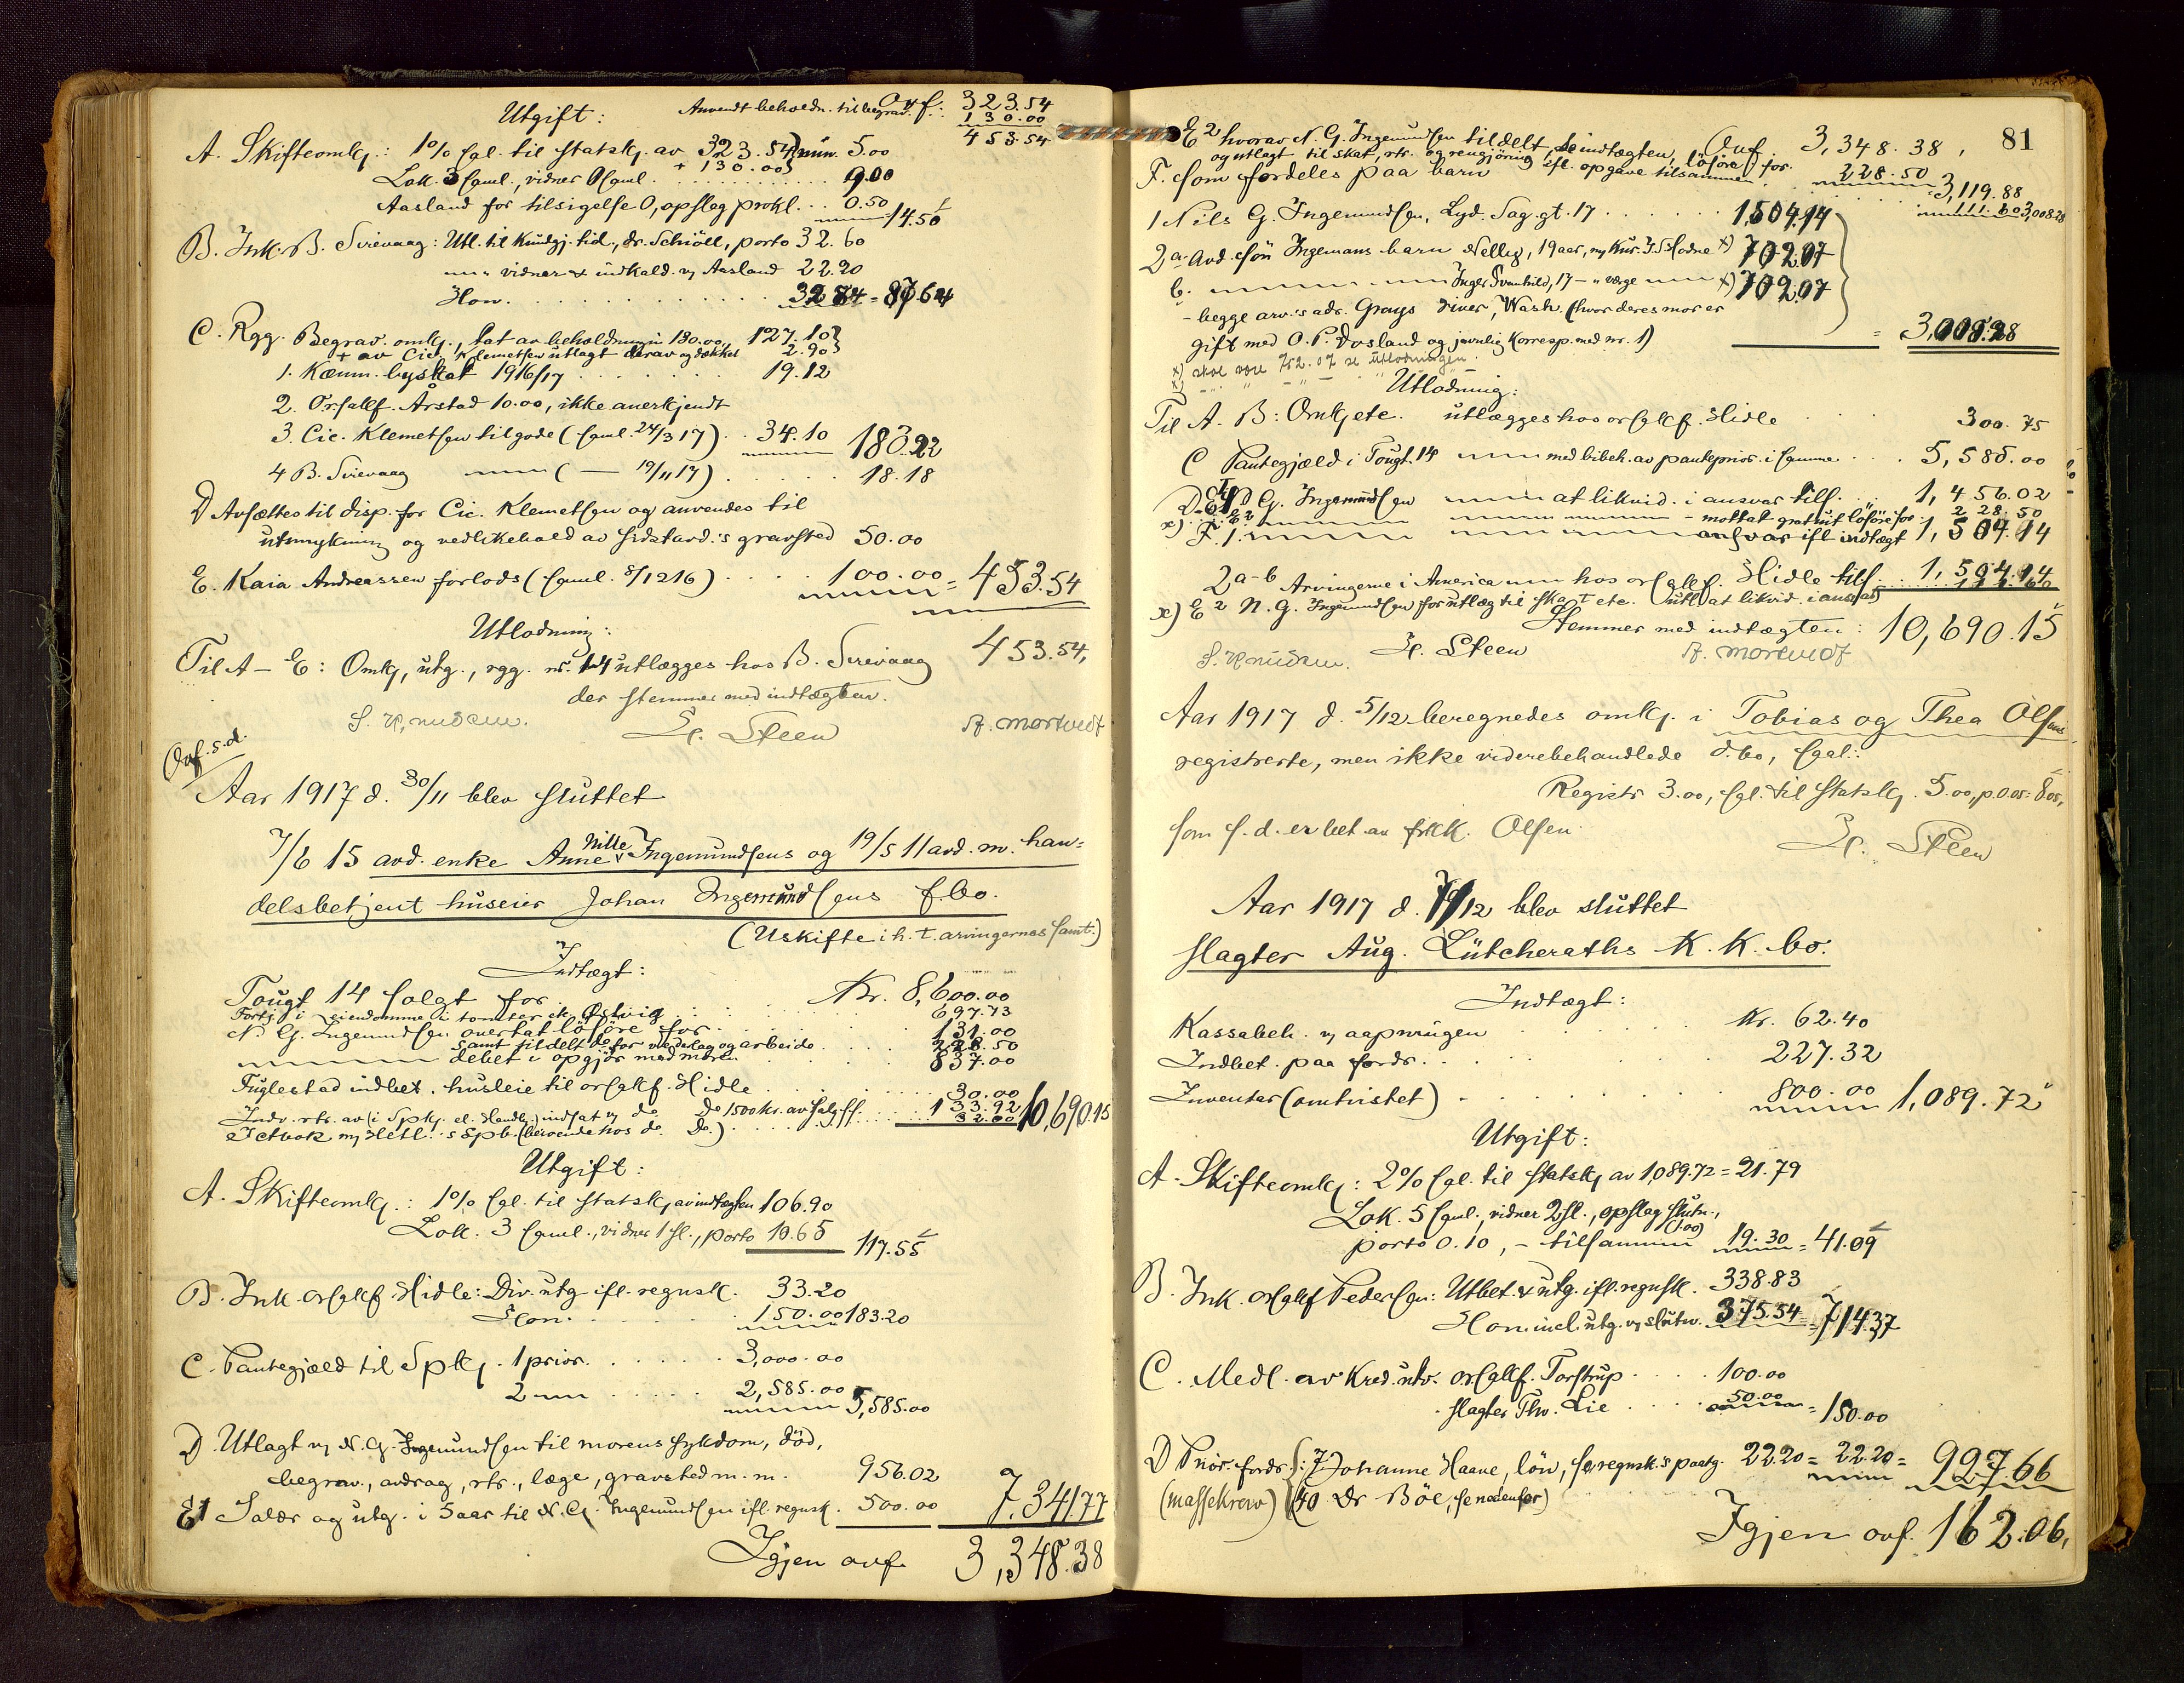 Utgift: Anvendt beholdn. til begrav. Ovf.: 323.54
130.00
453.54
A. Skifteomkj.: 1% sgl. til statskj. av 323.54 min. 5.00
+ 130.00
Lok. 3 saml., vidner saml. 9.00
Aasland for tilsigelse 0, opslag prokl. 0.50 14.50
B. Ink. B. Sirevaag: Utl. til Kundgj. tid., dr. Schiöll, porto 32.60
vidner & indkald. v/ Aasland 22.20
Hon. 32.84 = 87.64
C. Rgg. Begrav. omkj., sat av beholdningen 130.00, 127.10
+ av Cic. Klemetsen utlagt derav og dækket 2.90
1. Kæmn. byskat 1916/17 19.12
2. Orsakf. Årstad 10.00, ikke anerkjendt
3. Cic. Klemetsen tilgode (saml. 24/3 17) 34.10 183.22
4 B. Sirevaag — (— 19/11 17) 18.18
D Avsættes til disp. for Cic. Klemetsen og anvendes til
utsmykning og vedlikehold av sidstavd.'s gravsted 50.00
E. Kaia Andreassen forlods (saml. 8/12 16) 100.00 = 453.54
Utlodning:
Til A - E: Omkj, utg., rgg. nr. 1-4 utlægges hos B. Sirevaag 453.54,
der stemmer med indtægten.
S. Knudsen. H. Steen A. Mortvedt
Ovf. s.d.
Aar 1917 d. 30/11 blev sluttet
7/6 15 avd. enke Anne Nille Ingemundsens og 19/5 11 avd. m. han-
delsbetjent huseier Johan Ingemundsens f.bo.
(Uskifte i h. t. arvingernes samt.)
Indtægt:
Tougt 14 solgt for Kr. 8,600.00
Fortj. i eiendomme i tomter ek. Østvig 697.73
N. G. Ingemundsen overtat löföre for 131.00
samt tildelt do for vederlag og arbeide 228.50
— debet i opgjör med moren 837.00
Fuglestad indbet. husleie til orsakf. Hidle 30.00
Indv. rtr. av (i Spkj. el. Handlb.) indsat v/ do Do 1500 kr. av salgss. 133.92 10,690.15
I ctbok m/ Hetl.'s Spb. (beroende hos do. Do.) 32.00
Utgift:
A. Skifteomkj.: 1% sgl. til statskj av indtægten 106.90
Lok. 3 saml., vidner 1 sl., porto 10.65 117.55
B. Ink. orsakf. Hidle: Div. utg ifl. regnsk. 33.20
Hon. 150.00 183.20
C. Pantegjæld til Spkj. 1 prior. 3,000.00
2 — 2,585.00 5,585.00
D. Utlagt v/ N. G. Ingemundsen til morens sykdom, död,
begrav., avdrag, rtr., læge, gravsted m. m. 956.02
E1 Salær og utg. i 5 aar til N. G. Ingemundsen ifl. regnsk. 500.00 7,341.77
Igjen ovf. 3,348.38
81
E2 hvorav N. G. Ingemundsen tildelt, se indtægten, löföre for Ovf. 3,348.38,
og utlagt til skat, rtr. og rengjöring ifl. opgave tilsammen 228.50 3,119.88
F. Som fordeles paa barn 111.60 3,008.28
1 Nils G. Ingemundsen, Lyd. Sag. gt. 17 1,504.14
2a. Avd. sön Ingemans barn Nelly, 19 aar, m/ Kur. I. S. Hodne x) 702.07
b. — Inger Svanhild, 17 — værge — x) 702.07
- begge arv.'s adr. Grays River, Wash. (hvor deres mor er
gift med O. P. Rosland og jævnlig korresp. med nr. 1) = 3,008.28
x) skal være 752.07 se Utlodningen
Utlodning:
Til A. B: Omkj etc. utlægges hos orsakf. Hidle 300.75
C Pantegjæld i Tougt. 14 — med bibeh. av panteprior. i samme 5,585.00
D-E1 N G. Ingemundsen — at likvid. i ansvar tils. 1,456.02
x) E2 — — mottat gratuit löföre for 228.50
F. 1. — — ansvar ifl indtægt 1,504.14
2a-b Arvingerne i America — hos orsakf. Hidle tils. 1,504.14
x) E 2 N. G. Ingemundsen for utlæg til skat etc. (utl. at likvid. i ansvar) 111.60
Stemmer med indtægten: 10,690.15
S. Knudsen. H. Steen A. Mortvedt
Aar 1917 d. 5/12 beregnedes omkj. i Tobias og Thea Olsens
registrerte, men ikke viderebehandlede d.bo, sgel.:
Registr 3.00, sgl. til statskj. 5.00, p. 0.05 = 8.05,
som s. d. er bet. av frkk. Olsen.
H. Steen
Aar 1917 d. /12 blev sluttet
slagter Aug. Lütcheraths K. K. bo.
Indtægt:
Kassabeh. v/ aapningen Kr. 62.40
Indbet. paa fordr. 227.32
Inventar (omtvistet) 800.00 1,089.72
Utgift:
A. Skifteomkj: 2% sgl. til statskj av 1,089.72 = 21.79
Lok. 5 saml., vidner 2 sl., opslag slutn.,
(1.00)
porto 0.10, - tilsammen 19.30 = 41.09
B. Ink. orsakf Pedersen: Utbet. & utg. ifl. regnsk. 338.83
Hon. incl. utg. v/ slutn. 375.54 = 714.37
C. Medl. av Kred. utv. orsakf. Torstrup 100.00
slagter Thv. Lie 50.00 = 150.00
D Prior. fordr.: 7 Johanne Haave, lön, se regnsk.'s paateg. 22.20 = 22.20 = 927.66
(massekrav) (40 Dr Böe, se nedenfor)
Igjen ovf. 162.06,